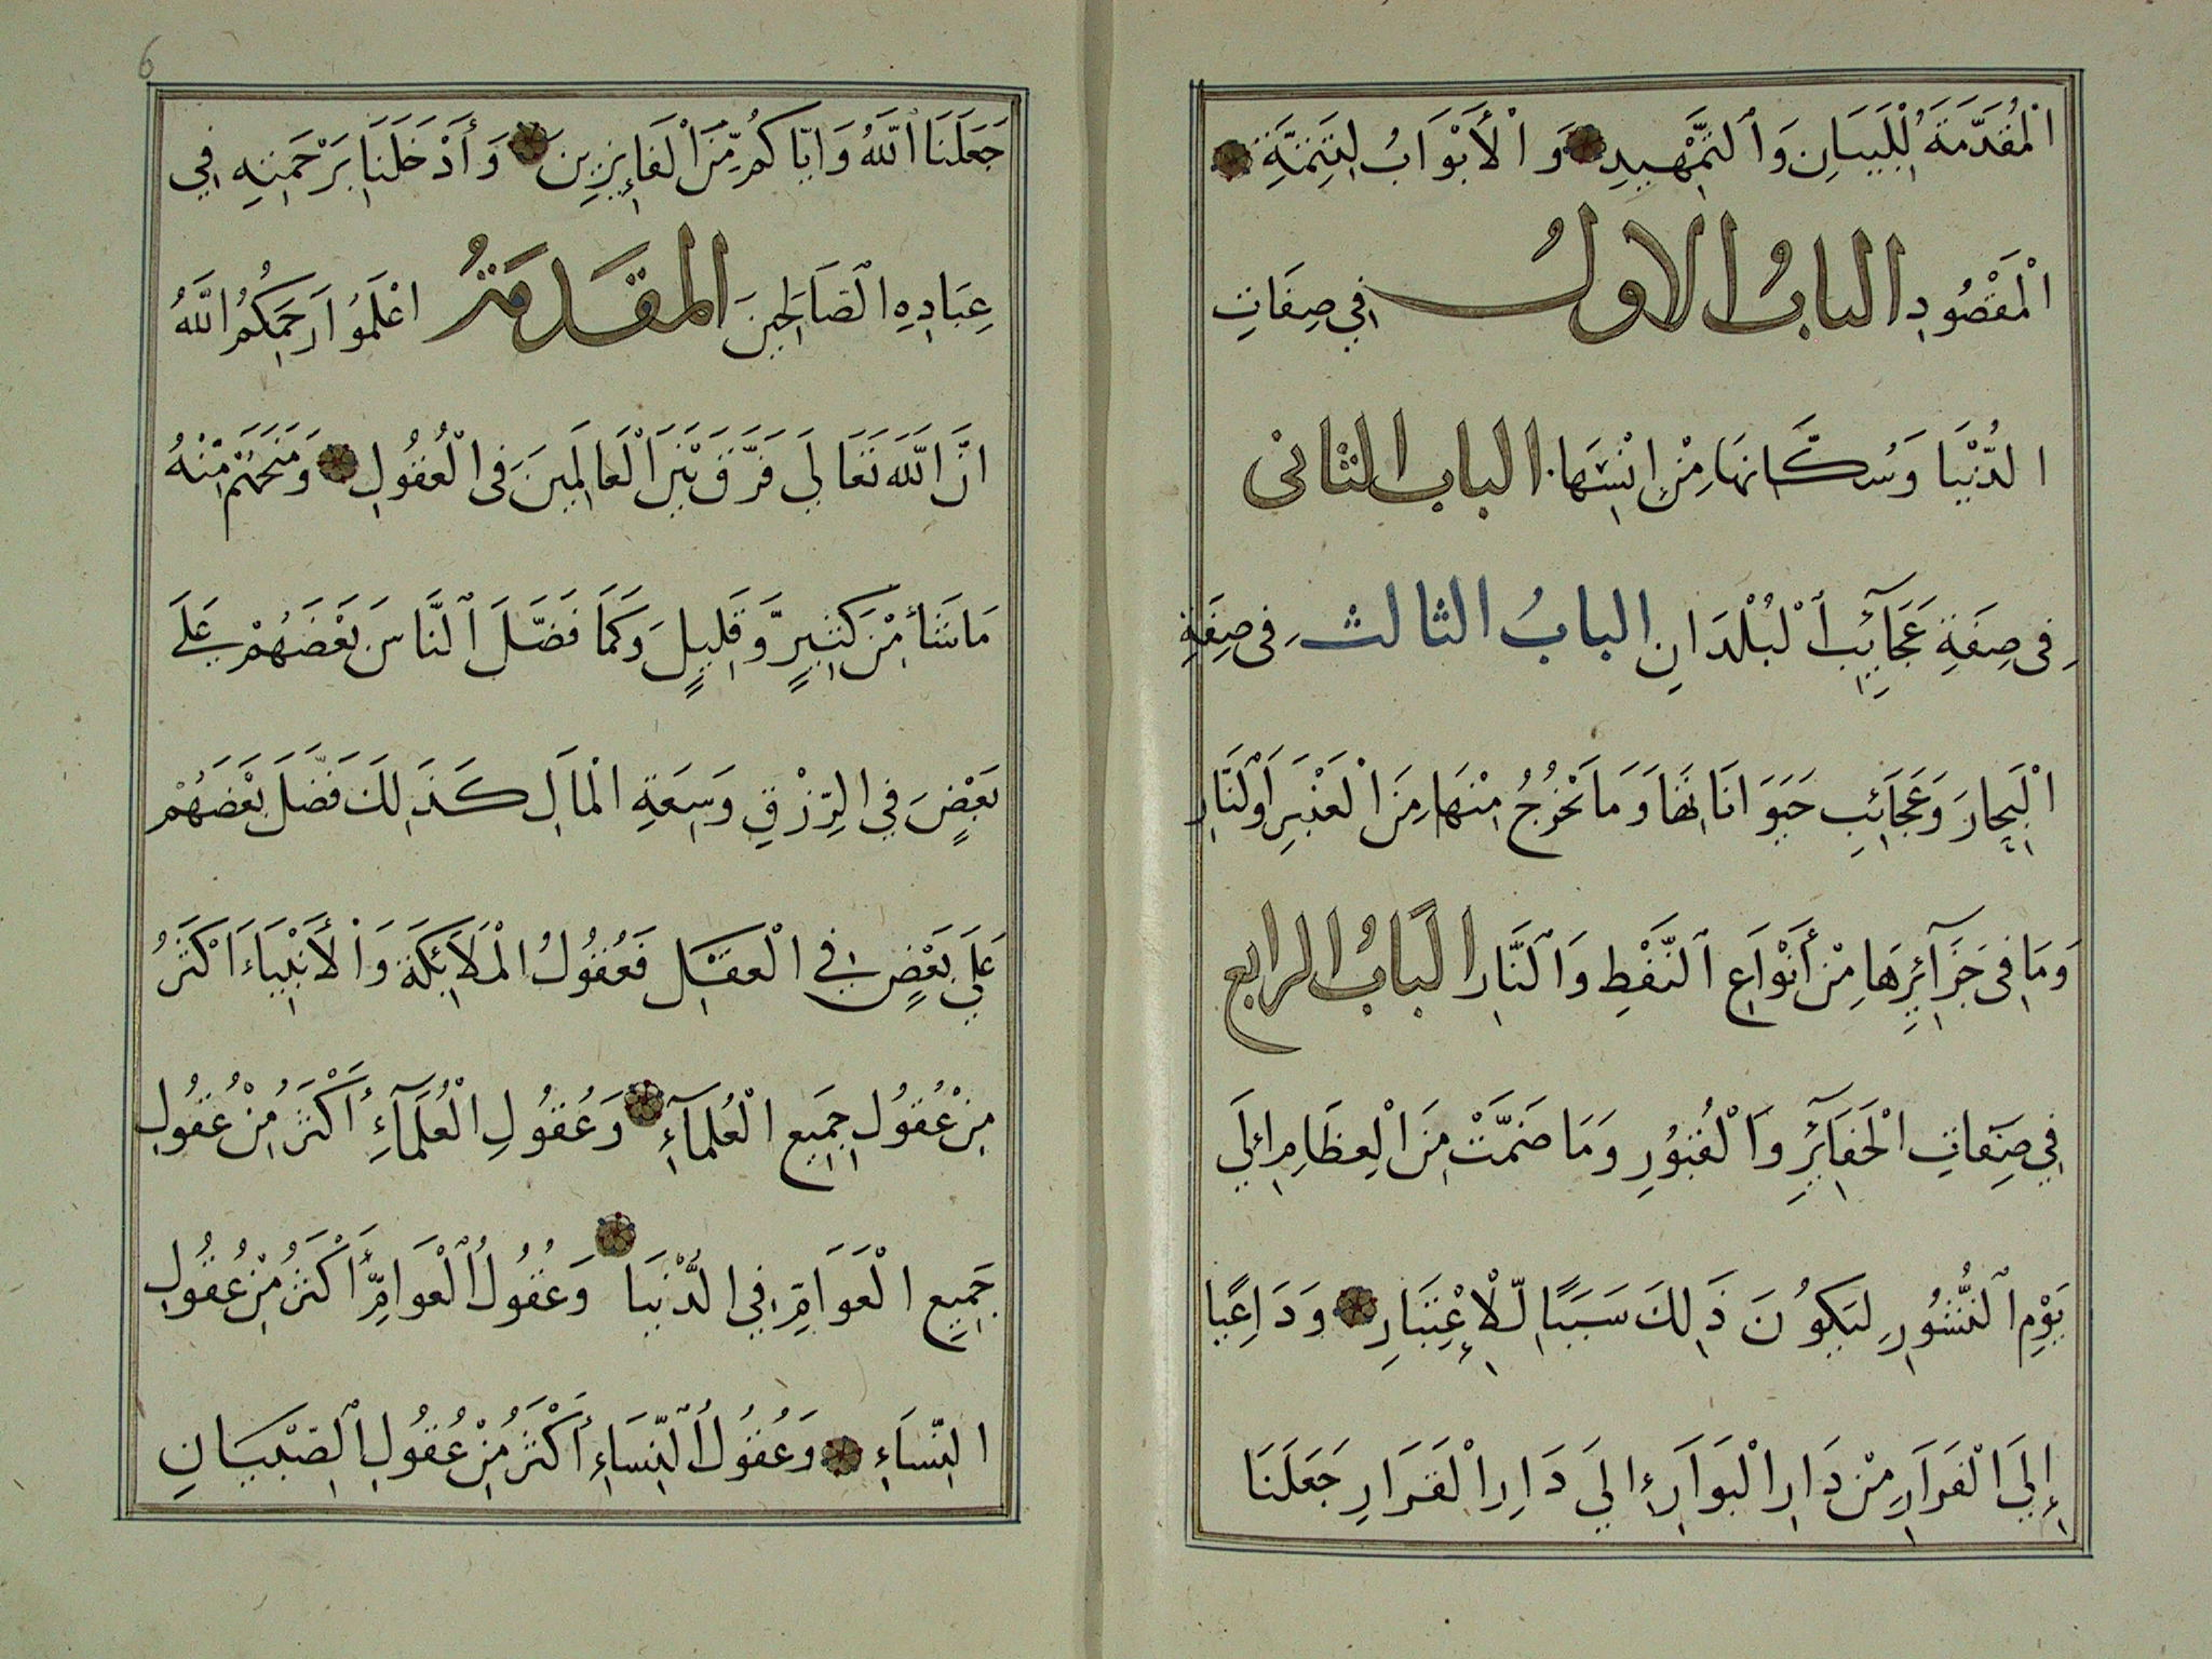 اْلمُقَدَّمَةُ لِلْبَيَانِ وَالتَّمْهِيدِ وَالْأَبْوَابُ لِتَتِمَّةِ
الْمَقْصُودِ البابُ الاولُ فِي صِفَاتِ
الدُّنْيَا وَسُكَّانِهَا مِنْ اِنْسِهَا البابُ الثانى
فِى صِفَةِ عَجَآئِبِ الْبُلْدَانِ البابُ الثالث فِى صِفَةِ
الْبِحَارَ وَعَجَائِبِ حَيَوَانَاتِهَا وَمَا يَخْرُجُ مِنْهَا مِنَ الْعَنْبَرِ وَالنَّارِ
وَمَا فِى جَزَآئِرِهَا مِنْ أَنْوَاعِ النَّفْطِ وَالنَّارِ البَابُ الرابع
فِي صِفَاتِ الْحَفَآئِرِ وَالْقُبُورِ وَمَا ضَمَّتْ مِنَ الْعِظَامِ اِلَي
يَوْمِ النُّشُورِ لِيَكُونَ ذَلِكَ سَبَبًا لِلْإِعْتِبَارِ وَدَاعِيًا
إِلَيَ الْفَرَارِ مِنْ دَارِ الْبَوَارِ إِلَي دَارِ الْقَرَارِ جَعَلَنَا
6
جَعَلَنَا اللَّهُ وَاِيَّاكُمْ مِنَ الْفَائِزِينَ وَأَدْخَلَنَا بِرَحْمَتِهِ فِي
عِبَادِهِ الصَّالِحِينَ المقَدمَةُ اعْلَمُوا رَحِمَكُمُ اللَّهُ
انَّ اللَّهَ تَعَالَي فَرَّقَ بَيْنَ الْعَالَمِينَ فِى الْعُقُولِ وَمَنَحَهُمْ مِنْهُ
مَا شَاءَ مِنْ كَثِيرٍ وَّقَلِيلٍ وَكَمَا فَضَّلَ النَّاسَ بَعْضَهُمْ عَلَي
بَعْضٍ فِي الرِّزْقِ وَسِعَةِ الْمَالِ كَذَلِكَ فَضَّلَ بَعْضَهُمْ
عَلَي بَعْضٍ فِي الْعَقْلِ فَعُقُولُ الْمَلَائِكَةِ وَالْأَنْبِيَاءَ اَكْثَرُ
مِنْ عُقُولِ جَمِيعِ الْعُلَمَآءِ وَعُقُولِ الْعُلَمَآءِ أَكْثَرُ مِنْ عُقُولِ
جَمِيعِ الْعَوَامِّ فِي الدُّنْيَا وَعُقُولُ الْعَوَامِّ أَكْثَرُ مِنْ عُقُولِ
النِّسَاءِ وَعُقُولُ النِّسَاءِ أَكْثَرُ مِنْ عُقُولِ الصِّبْيَانِ